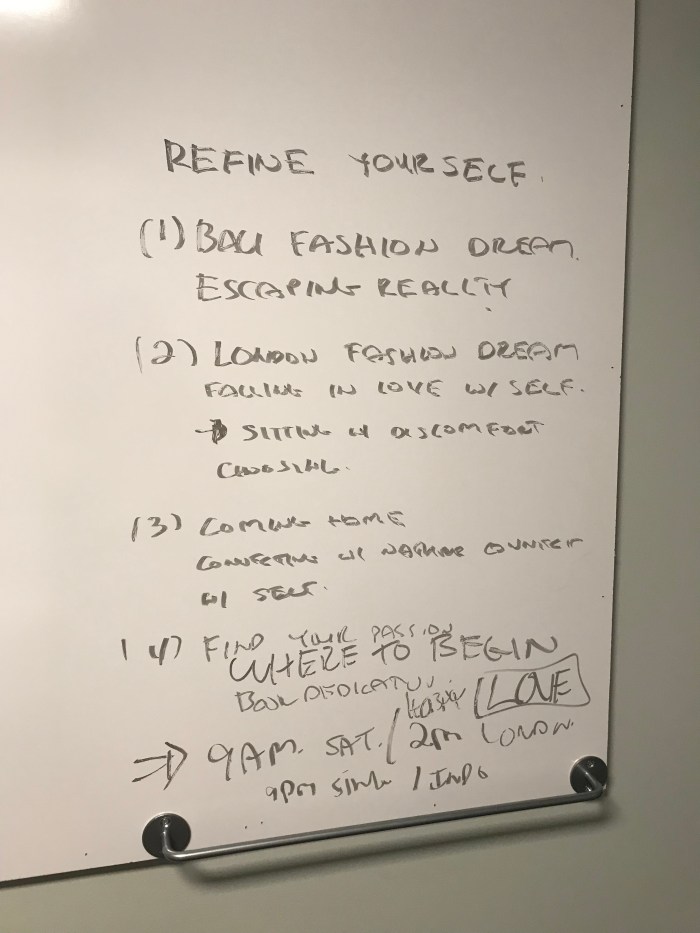 REFINE YOURSELF.
(1) BALI FASHION DREAM.
ESCAPING REALITY
(2) LONDON FASHION DREAM
FALLING IN LOVE W/ SELF.
→ SITTING W DISCOMFORT
CHOOSING.
(3) COMING HOME
CONNECTING W/ NATURE
W/ SELF.
(4) FIND YOUR PASSION
WHERE TO BEGIN
BOOK DEDICATION
LOVE
⇒ 9AM. SAT. / 2PM LONDON.
9PM SING / INDO